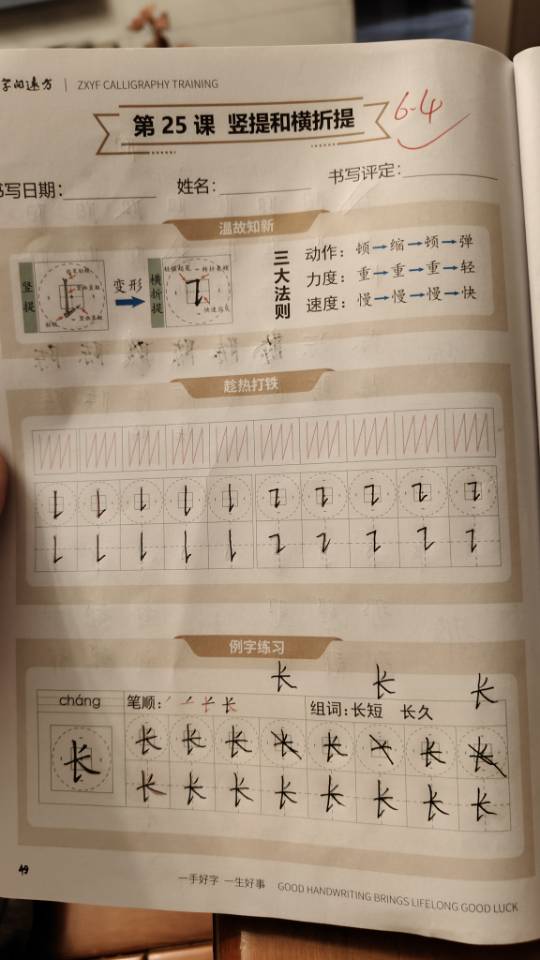 ZXYF CALLIGRAPHY TRAINING
第 25 课 竖提和横折提
6.4
书写日期: 姓名: 书写评定:
温故知新
竖提 变形 横折提
三大法则
动作: 顿→缩→顿→弹
力度: 重→重→重→轻
速度: 慢→慢→慢→快
趁热打铁
例字练习
长 长 长
cháng 笔顺: 长 组词:长短 长久
长 长 长 长 长 长 长 长 长
长 长 长 长 长 长 长 长
49
一手好字 一生好事 GOOD HANDWRITING BRINGS LIFELONG GOOD LUCK